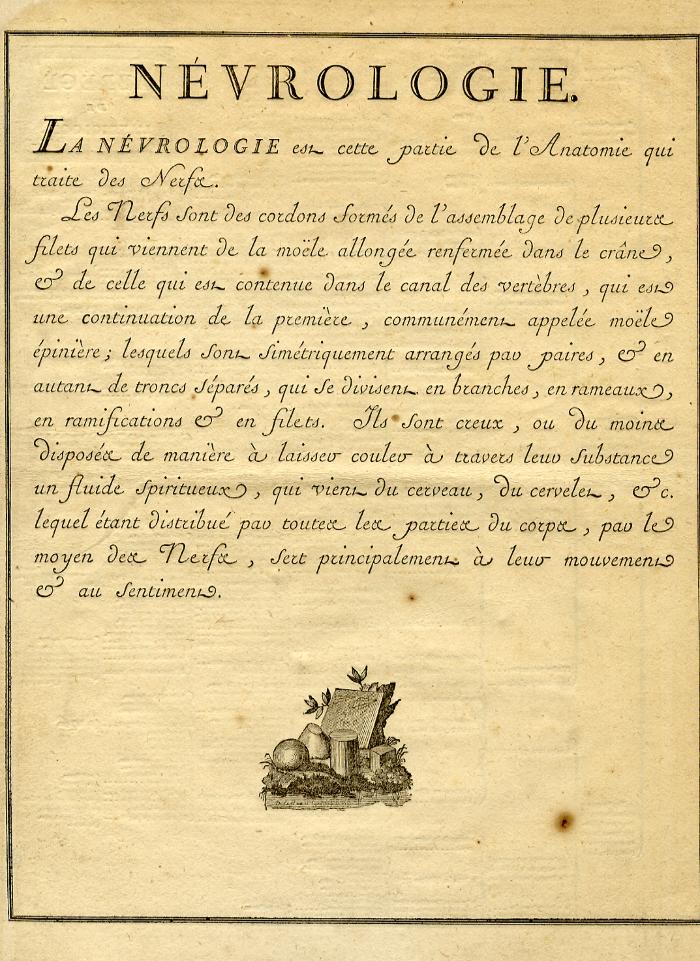 NÉVROLOGIE.
LA NÉVROLOGIE est cette partie de l'Anatomie qui
traite des Nerfs.
Les Nerfs sont des cordons formés de l'assemblage de plusieurs
filets qui viennent de la moële allongée renfermée dans le crâne,
& de celle qui est contenue dans le canal des vertèbres, qui est
une continuation de la première, communément appelée moële
épinière; lesquels sont simétriquement arrangés par paires, & en
autant de troncs séparés, qui se divisent en branches, en rameaux,
en ramifications & en filets. Ils sont creux, ou du moins
disposés de manière à laisser couler à travers leur substance
un fluide spiritueux, qui vient du cerveau, du cervelet, &c.
lequel étant distribué par toutes les parties du corps, par le
moyen des Nerfs, sert principalement à leur mouvement
& au sentiment.